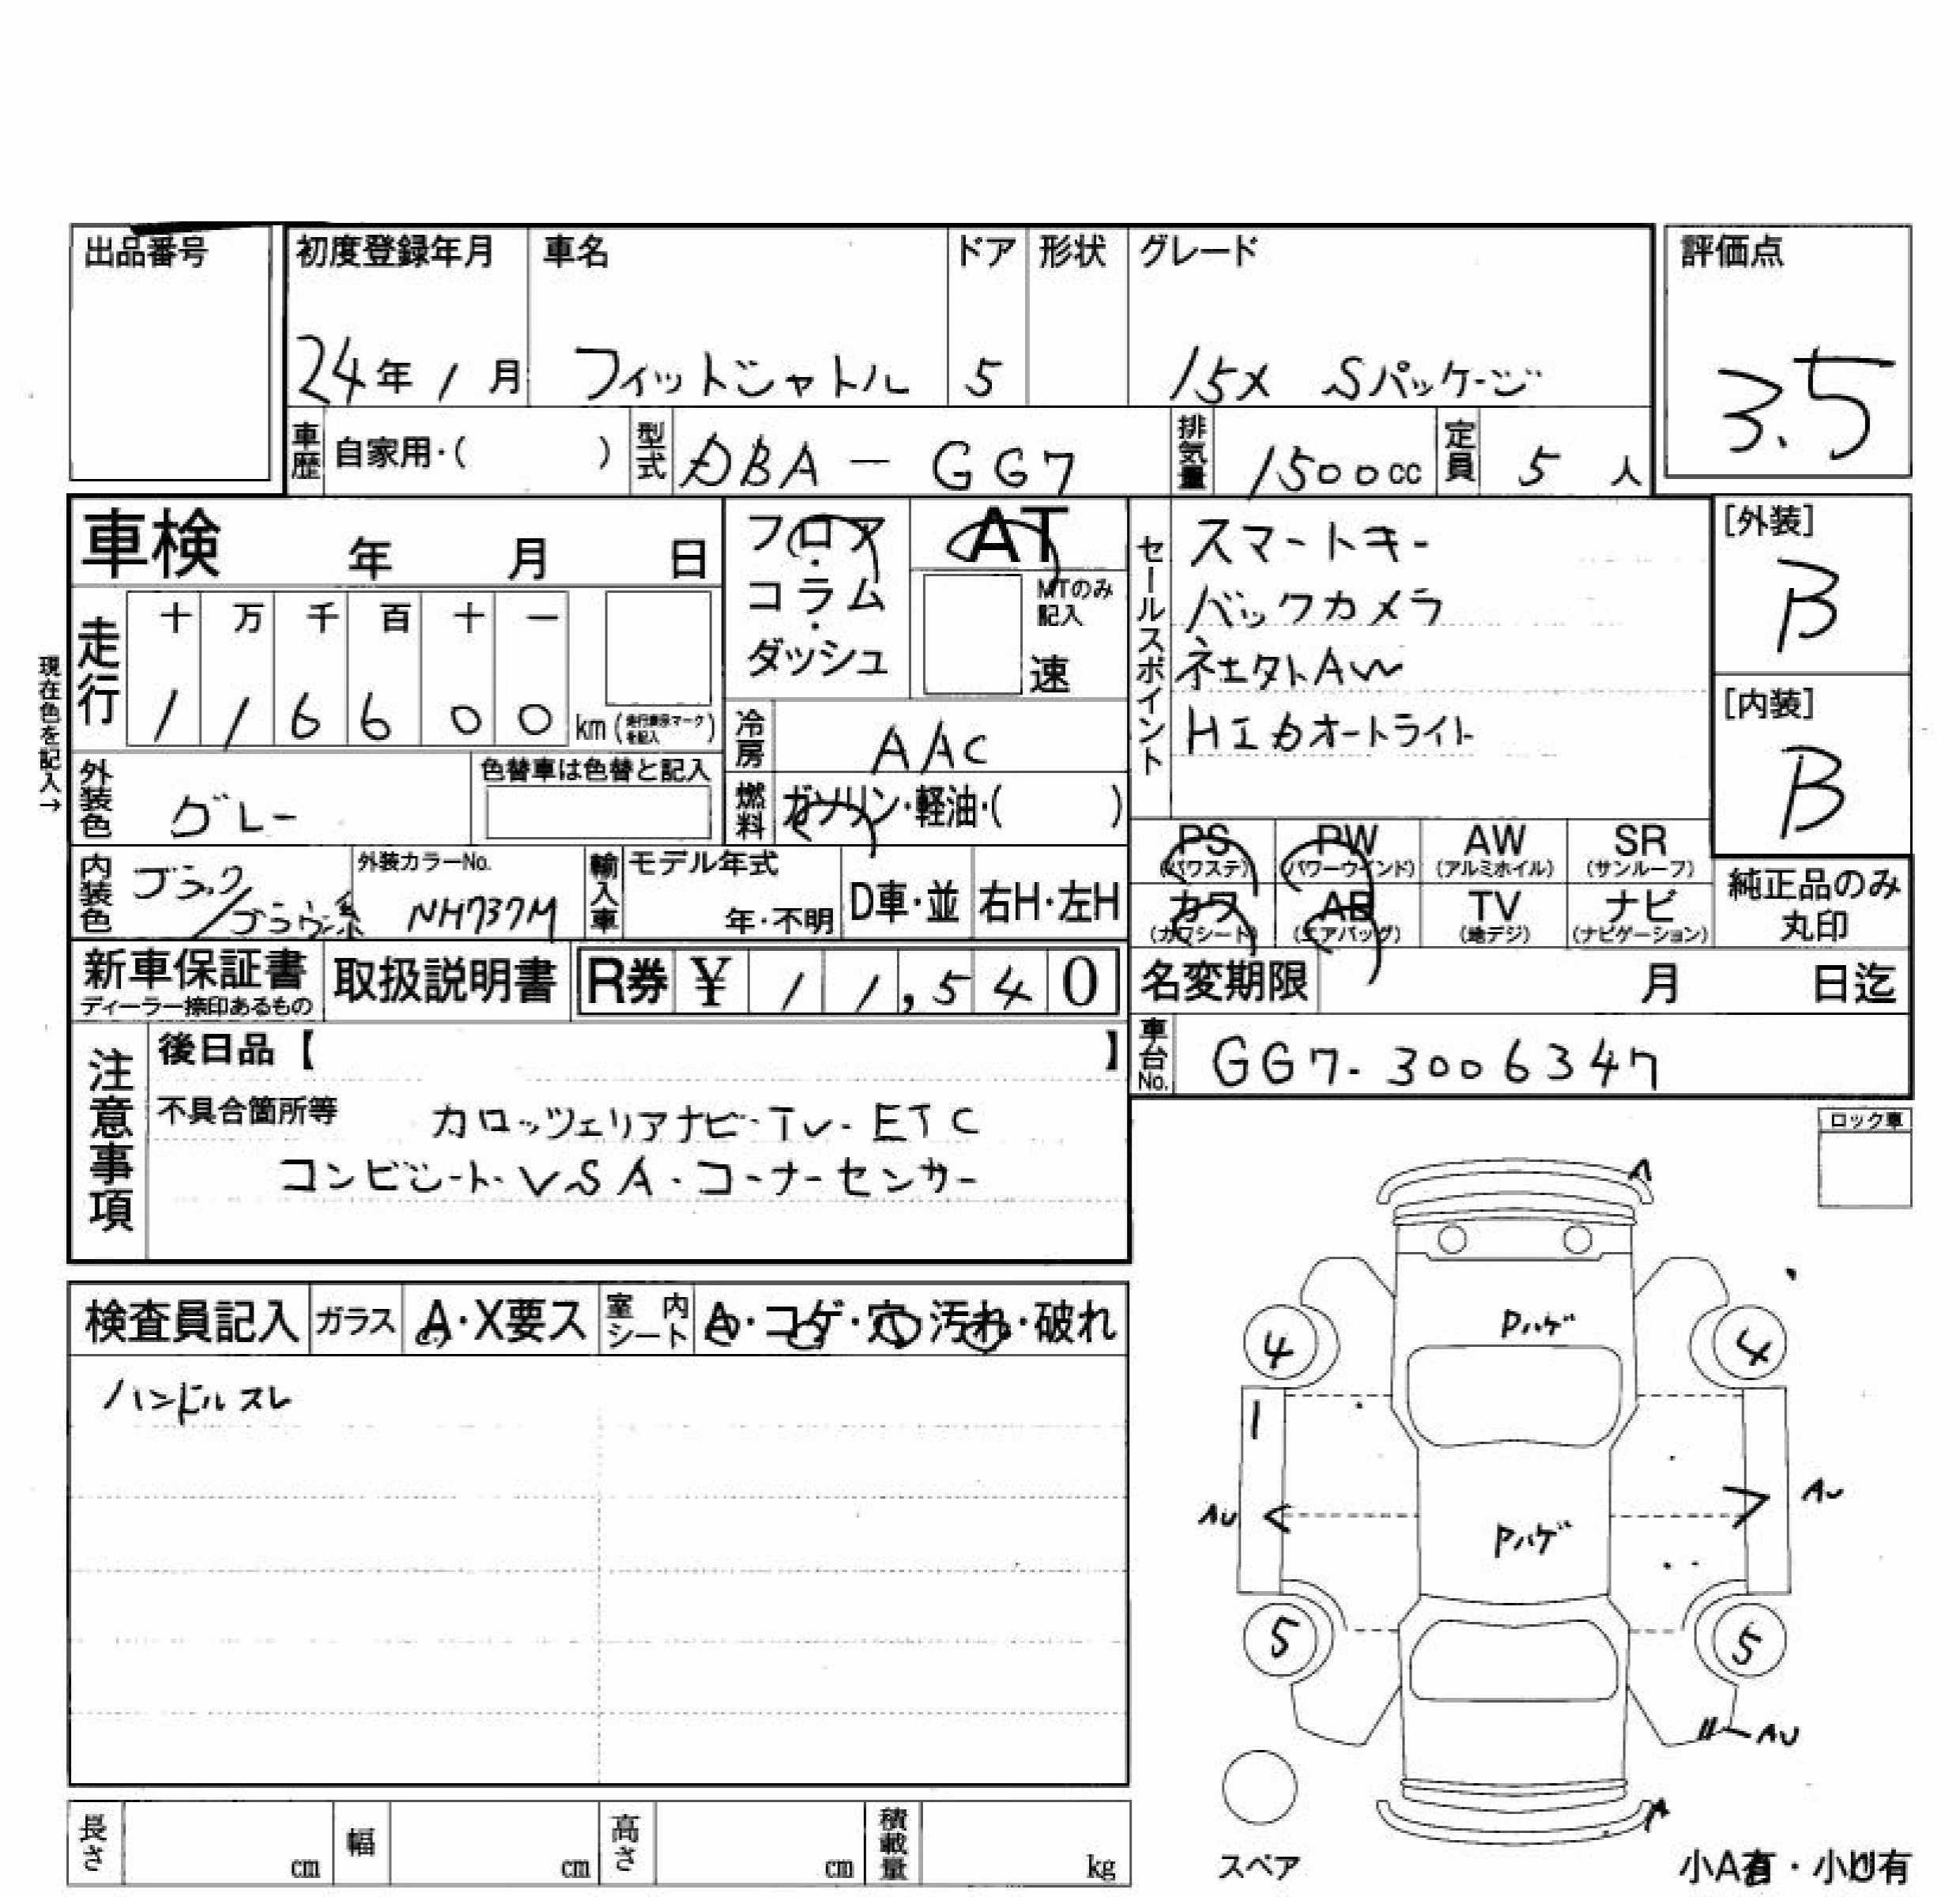 出品番号
初度登録年月 車名 ドア 形状 グレード 評価点
24年 1月 フィットシャトル 5 15X Sパッケージ 3.5
車歴 自家用・( ) 型式 DBA-GG7 排気量 1500cc 定員 5人
車検 年 月 日
フロア・コラム・ダッシュ
AT
MTのみ記入
速
現在色を記入→
走行 十 万 千 百 十 一
1 1 6 6 0 0 km(走行表示マークを記入)
冷房 AAC
燃料 ガソリン・軽油・( )
外装色 グレー 色替車は色替と記入
内装色 ブラック/ブラウン系
外装カラーNo. NH737M
輸入車 モデル年式 年・不明 D車・並 右H・左H
セールスポイント
スマートキー
バックカメラ
社外AW
HIDオートライト
[外装] B
[内装] B
PS (パワステ) PW (パワーウインド) AW (アルミホイル) SR (サンルーフ)
カワ (カワシート) AB (エアバッグ) TV (地デジ) ナビ (ナビゲーション)
純正品のみ丸印
新車保証書 ディーラー捺印あるもの 取扱説明書 R券 ¥ 11,540
名変期限 月 日迄
車台No. GG7-3006347
注意事項
後日品【 】
不具合箇所等 カロッツェリアナビ・TV・ETC
コンビシート・VSA・コーナーセンサー
ロック車
検査員記入 ガラス A・X要ス 室内シート A・コゲ・穴・汚れ・破れ
ハンドルスレ
A
Pハゲ
4 4
1
AU AU
Pハゲ
5 5
AU
A
スペア
小A有・小U有
長さ cm 幅 cm 高さ cm 積載量 kg